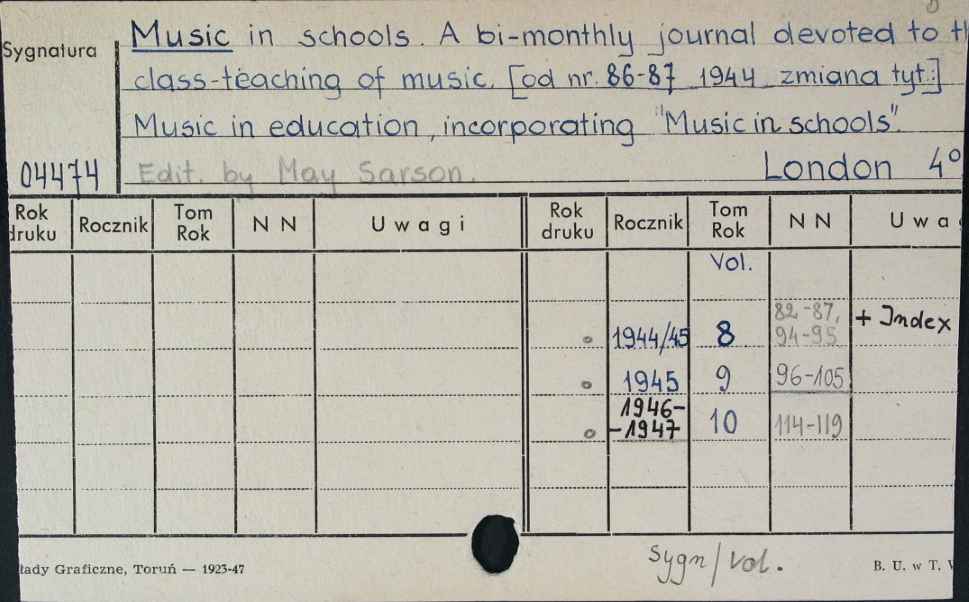 Sygnatura
Music in schools. A bi-monthly journal devoted to th
class-teaching of music. [od nr. 86-87 1944 zmiana tyt.:]
Music in education, incorporating "Music in schools".
04474 Edit. by May Sarson. London 4°
Rok druku Rocznik Tom Rok N N Uwagi Rok druku Rocznik Tom Rok N N Uwa
Vol.
1944/45 8 82-87, 94-95 + Index
1945 9 96-105
1946-
-1947 10 114-119
Sygn/vol.
łady Graficzne, Toruń — 1923-47 B. U. w T.